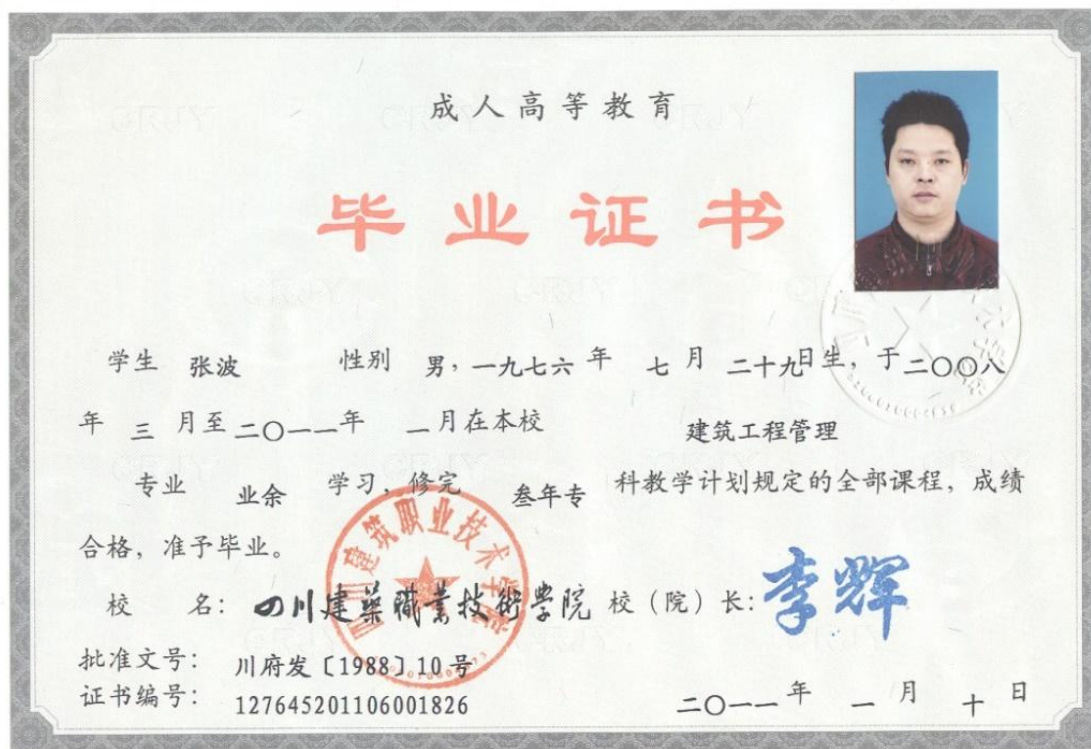 成人高等教育
毕业证书
学生 张波 性别 男，一九七六 年 七 月 二十九日生，于二〇〇八
年 三 月至 二〇一一年 一月在本校 建筑工程管理
专业 业余 学习，修完 叁年专 科教学计划规定的全部课程，成绩
合格，准予毕业。
四川建筑职业技术学院
校 名：四川建築職業技術學院 校（院）长：李辉
批准文号： 川府发〔1988〕10号
证书编号： 127645201106001826
二〇一一 年 一 月 十 日